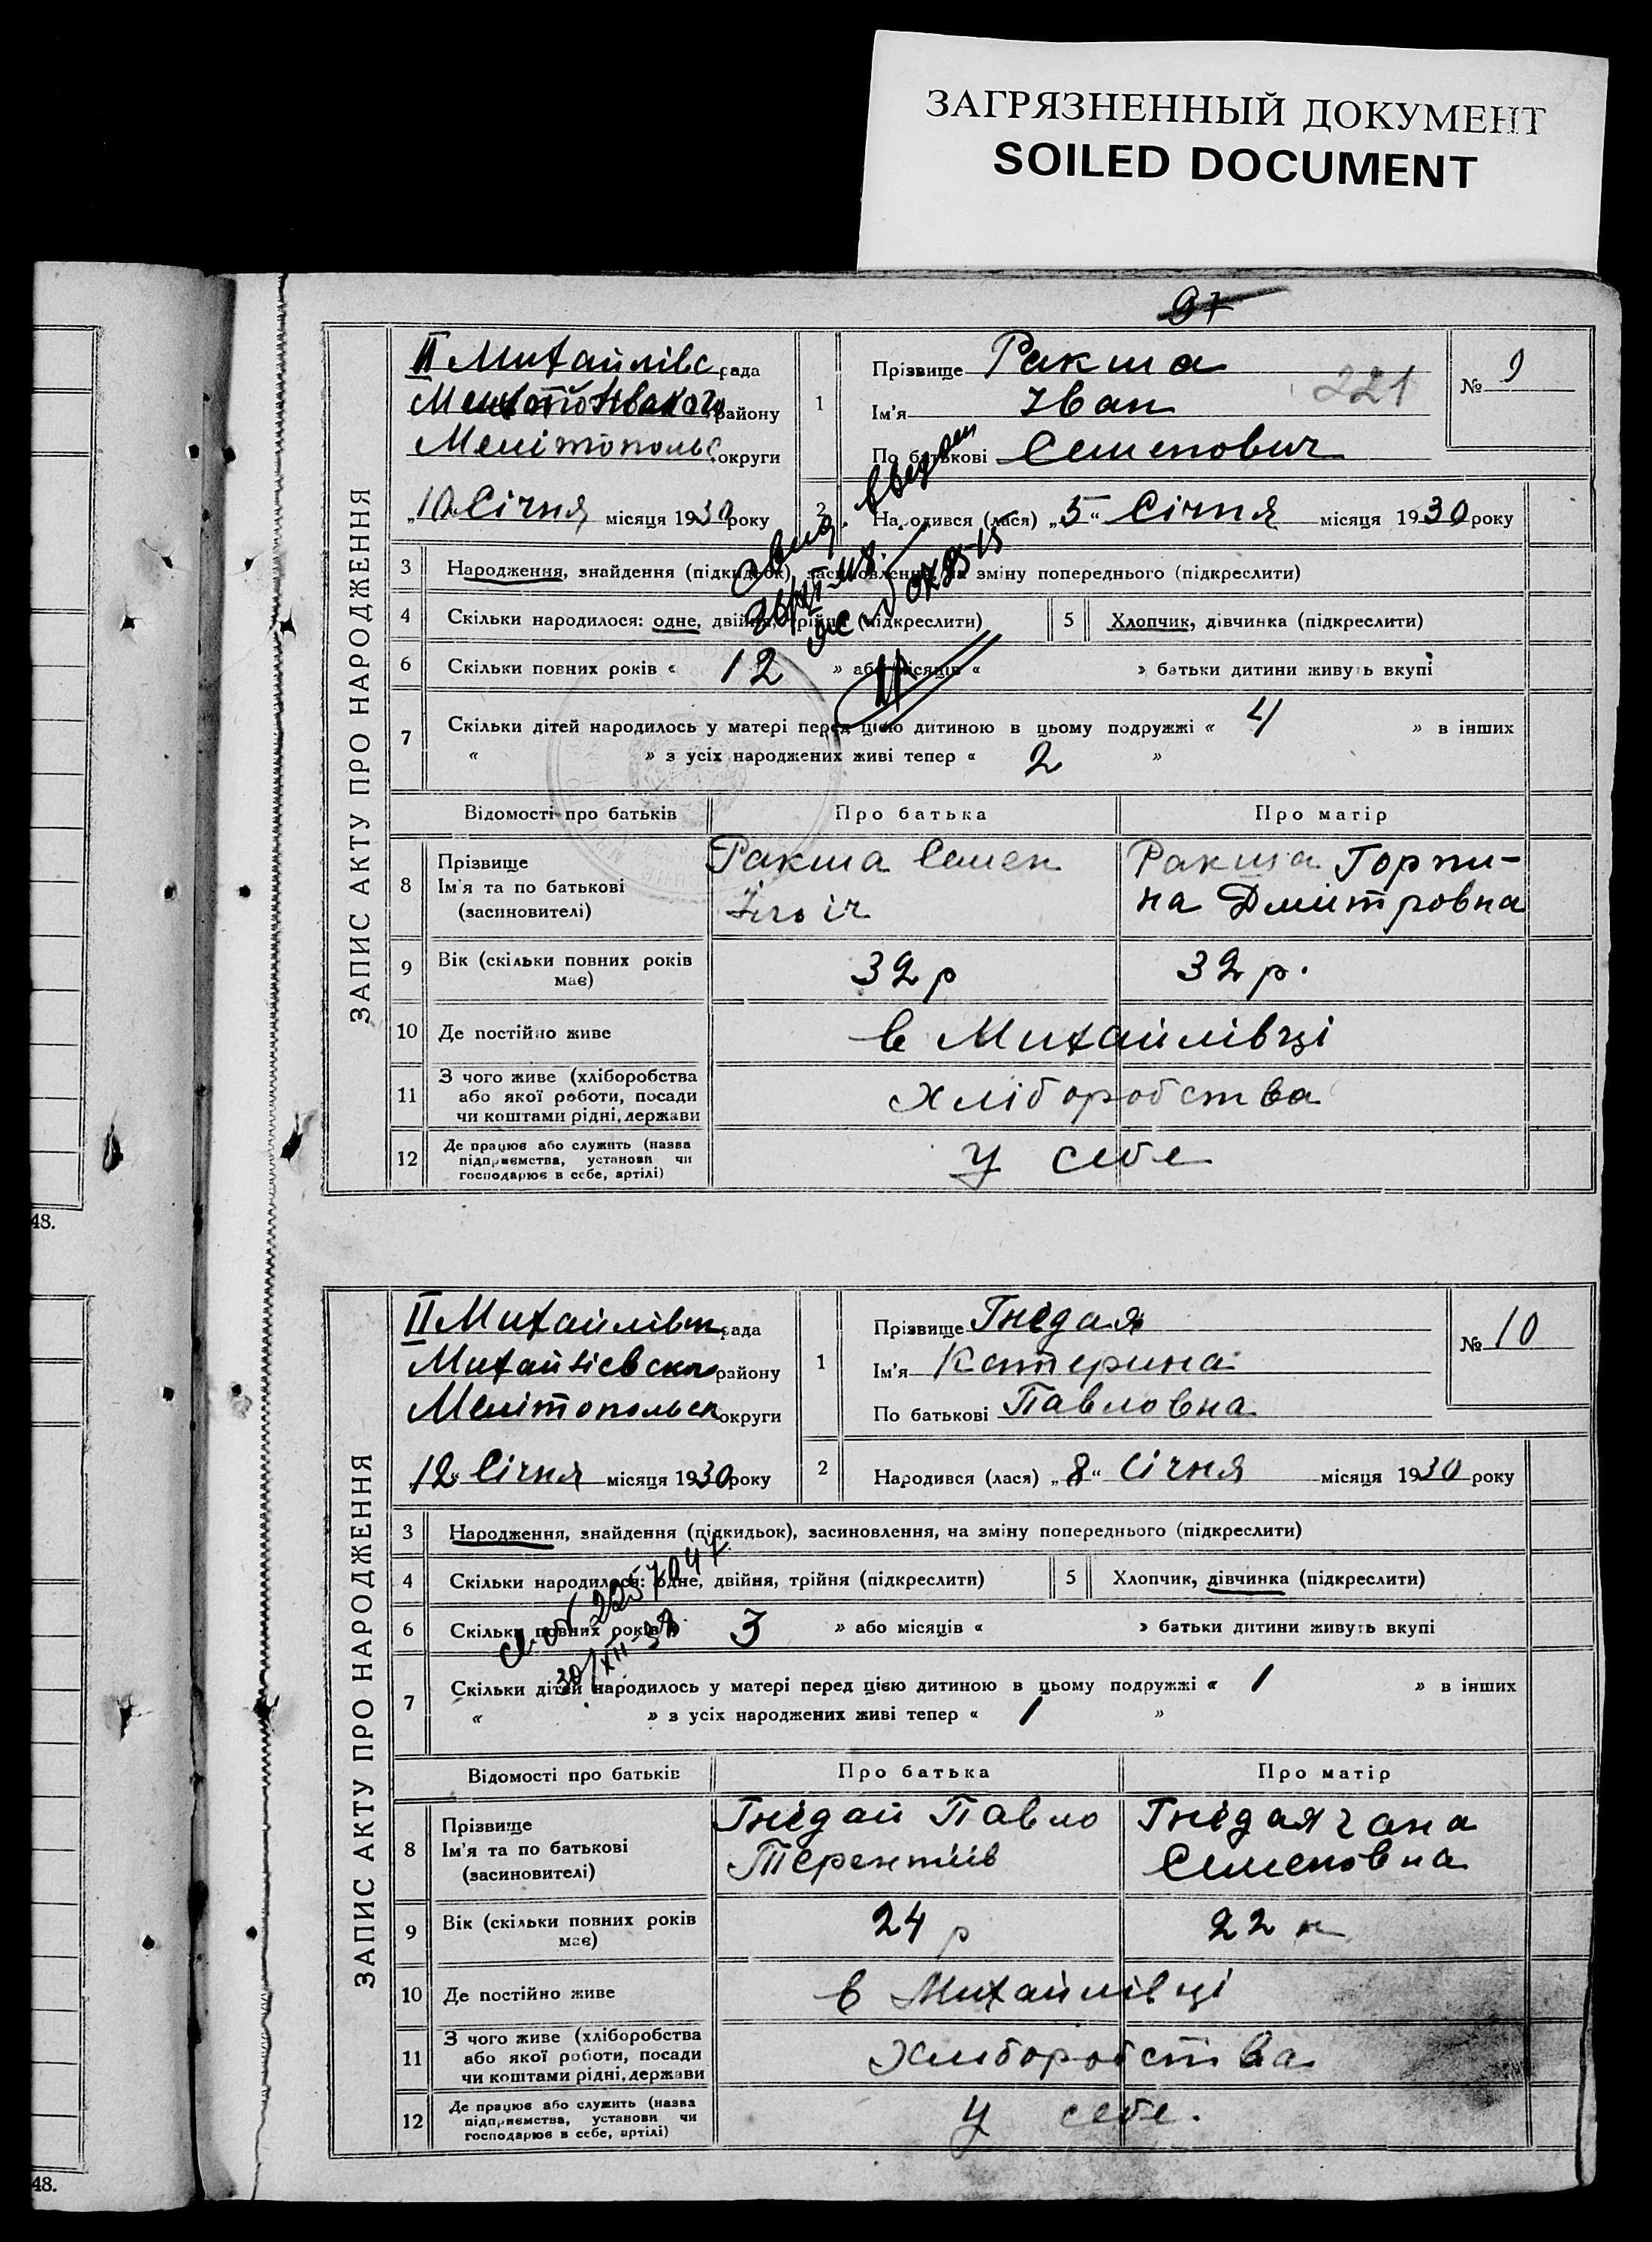 ЗАГРЯЗНЕННЫЙ ДОКУМЕНТ
SOILED DOCUMENT
97
ЗАПИС АКТУ ПРО НАРОДЖЕННЯ
ІІ Михайлівс рада
району
Мелітопольс округи
„10„ Січня місяця 1930 року
1 Прізвище Ракша
Ім'я Іван
По батькові Семенович
221
№ 9
2 Народився (лася) „5“ Січня місяця 1930 року
3 Народження, знайдення (підкидьок), засиновлення, на зміну попереднього (підкреслити)
4 Скільки народилося: одне, двійня, трійня (підкреслити) 5 Хлопчик, дівчинка (підкреслити)
6 Скільки повних років « 12 » або місяців « » батьки дитини живуть вкупі
7 Скільки дітей народилось у матері перед цією дитиною в цьому подружжі « 4 » в інших
« » з усіх народжених живі тепер « 2 »
Відомості про батьків Про батька Про матір
8 Прізвище
Ім'я та по батькові
(засиновителі)
Ракша Семен
Ракша Горпи-
на Дмитровна
9 Вік (скільки повних років
має)
32 р 32 р.
10 Де постійно живе в Михайлівці
11 З чого живе (хліборобства
або якої роботи, посади
чи коштами рідні, держави
хліборобства
12 Де працює або служить (назва
підприємства, установи чи
господарює в себе, артілі)
у себе
48.
ЗАПИС АКТУ ПРО НАРОДЖЕННЯ
ІІ Михайлівск рада
району
Мелітопольск округи
„12„ Січня місяця 1930 року
1 Прізвище Гнедая
Ім'я Катерина
По батькові Павловна
№ 10
2 Народився (лася) „8“ Січня місяця 1930 року
3 Народження, знайдення (підкидьок), засиновлення, на зміну попереднього (підкреслити)
4 Скільки народилося: одне, двійня, трійня (підкреслити) 5 Хлопчик, дівчинка (підкреслити)
6 Скільки повних років « 3 » або місяців « » батьки дитини живуть вкупі
7 Скільки дітей народилось у матері перед цією дитиною в цьому подружжі « 1 » в інших
« » з усіх народжених живі тепер « 1 »
Відомості про батьків Про батька Про матір
8 Прізвище
Ім'я та по батькові
(засиновителі)
Гнедай Павло
Терентіів
Гнедая Гана
Семеновна
9 Вік (скільки повних років
має)
24 р 22
10 Де постійно живе в Михайлівці
11 З чого живе (хліборобства
або якої роботи, посади
чи коштами рідні, держави
Хліборобства
12 Де працює або служить (назва
підприємства, установи чи
господарює в себе, артілі)
у себе.
48.